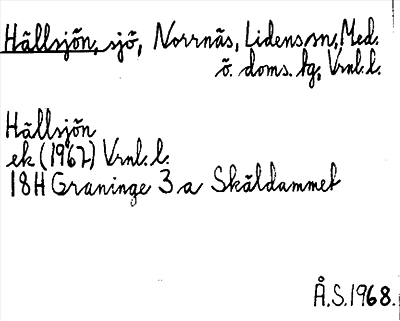 Hällsjön, sjö, Norrnäs, Lidens sn, Med.
ö. doms. hg, Vrnl. l.
Hällsjön
ek (1962) Vrnl. l.
18H Graninge 3 a Skäldammet
Å.S. 1968.